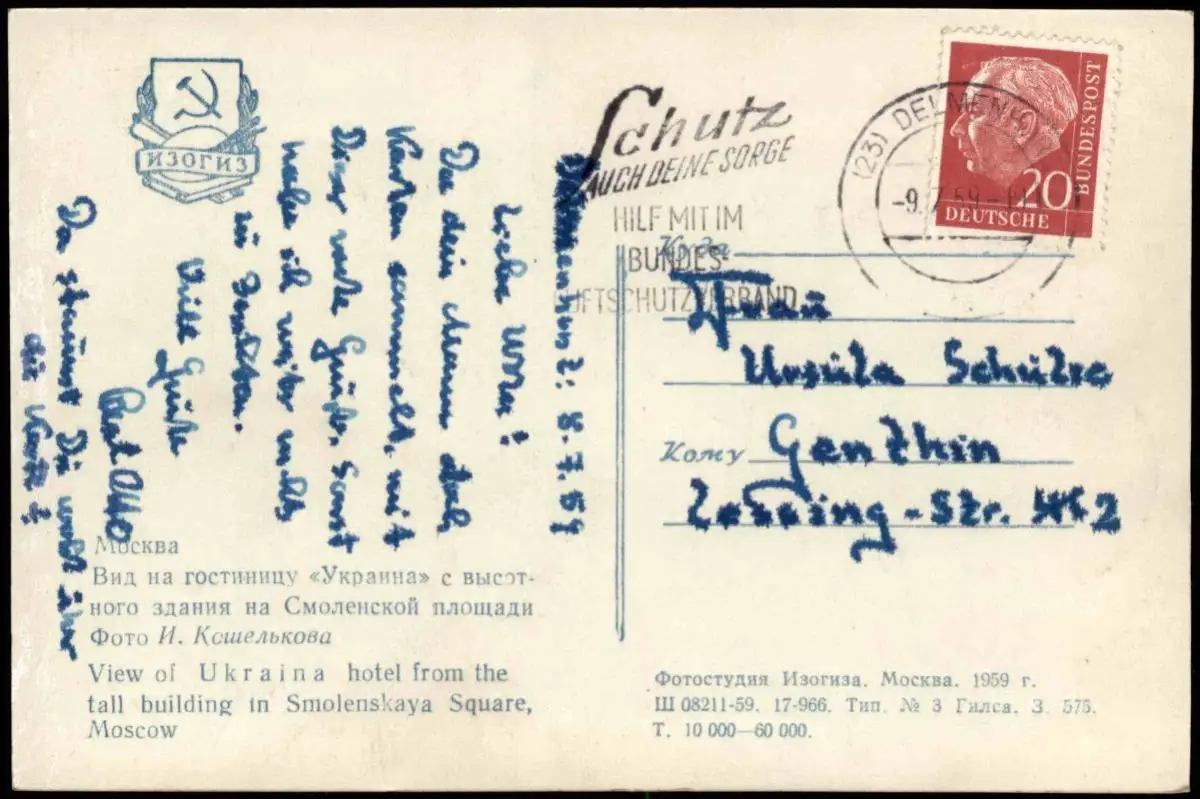 ИЗОГИЗ
Schutz
AUCH DEINE SORGE
HILF MIT IM
BUNDES-
LUFTSCHUTZVERBAND
(23) DELMENHO
-9.7.59-
20
DEUTSCHE
BUNDESPOST
Delmenhorst: 8.7.59
Liebe Ursu!
Da dein Mann doch
Karten sammelt, mit
Dieser viele Grüße. Sonst
habe ich weiter nichts
zu
Viele Grüße
Otto
Da staunst Du wohl über
die Karte?
Куда
Frau
Ursula Schulze
Кому
Genthin
Lessing-Str. 2
Москва
Вид на гостиницу «Украина» с высот-
ного здания на Смоленской площади
Фото И. Кошелькова
View of Ukraina hotel from the
tall building in Smolenskaya Square,
Moscow
Фотостудия Изогиза. Москва. 1959 г.
Ш 08211-59. 17-966. Тип. № 3 Гилса. З. 575.
Т. 10 000—60 000.